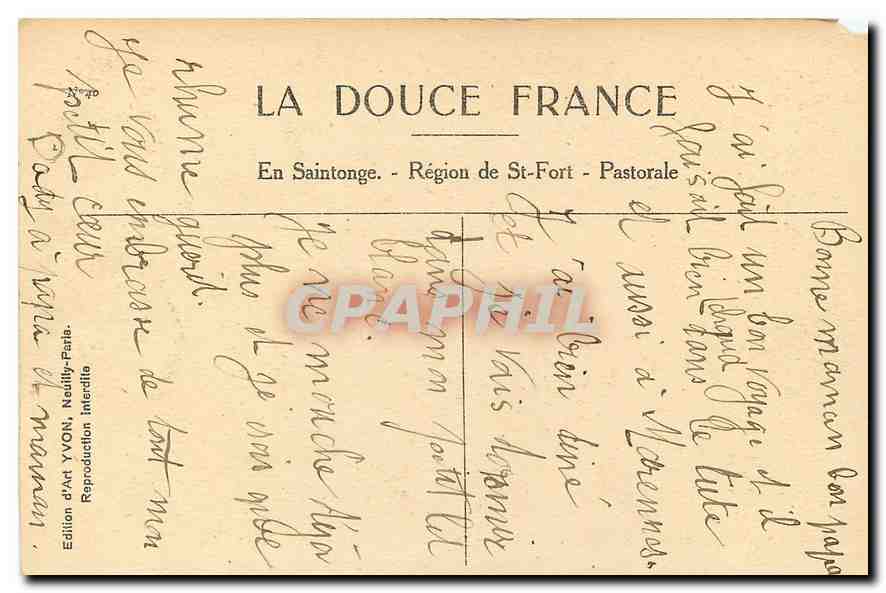 LA DOUCE FRANCE
En Saintonge. - Région de St-Fort - Pastorale
Bonne maman bon papa
J'ai fait un bon voyage et il
faisait bien chaud dans le
et aussi à Marennes.
J'ai bien diné
et je vais dormir
dans mon petit lit
blanc.
Je ne mouche déja
plus et je crois que
rhume guerit.
Je vous embrasse de tout mon
petit cœur
à papa et maman.
Edition d'Art YVON, Neuilly-Paris.
Reproduction Interdite
CPAPHIL